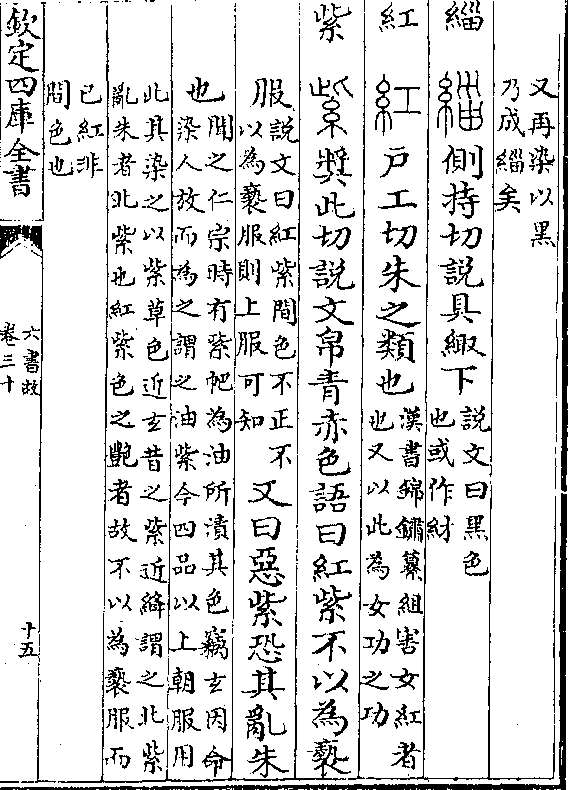 又再染以黑
乃成緇矣
緇 緇 側持切說具緅下 說文曰黑色
也或作䊷
紅 紅 戶工切朱之類也 漢書錦鏽纂組害女紅者
也又以此為女功之功
紫 紫 奬此切說文帛青赤色語曰紅紫不以為褻
服 說文曰紅紫間色不正不
以為褻服則上服可知 又曰惡紫恐其亂朱
也 聞之仁宗時有紫帊為油所漬其色竊玄因命
染人放而為之謂之油紫今四品以上朝服用
此其染之以紫草色近玄昔之紫近絳謂之北紫
亂朱者北紫也紅紫色之艷者故不以為褻服而
已紅非
間色也
欽定四庫全書
六書故
卷三十
十五